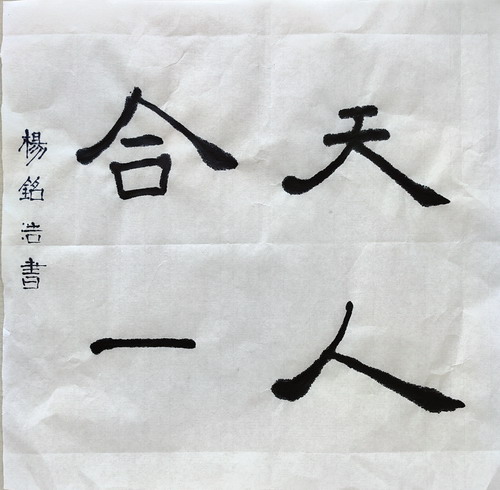 天人
合一
楊銘浩書